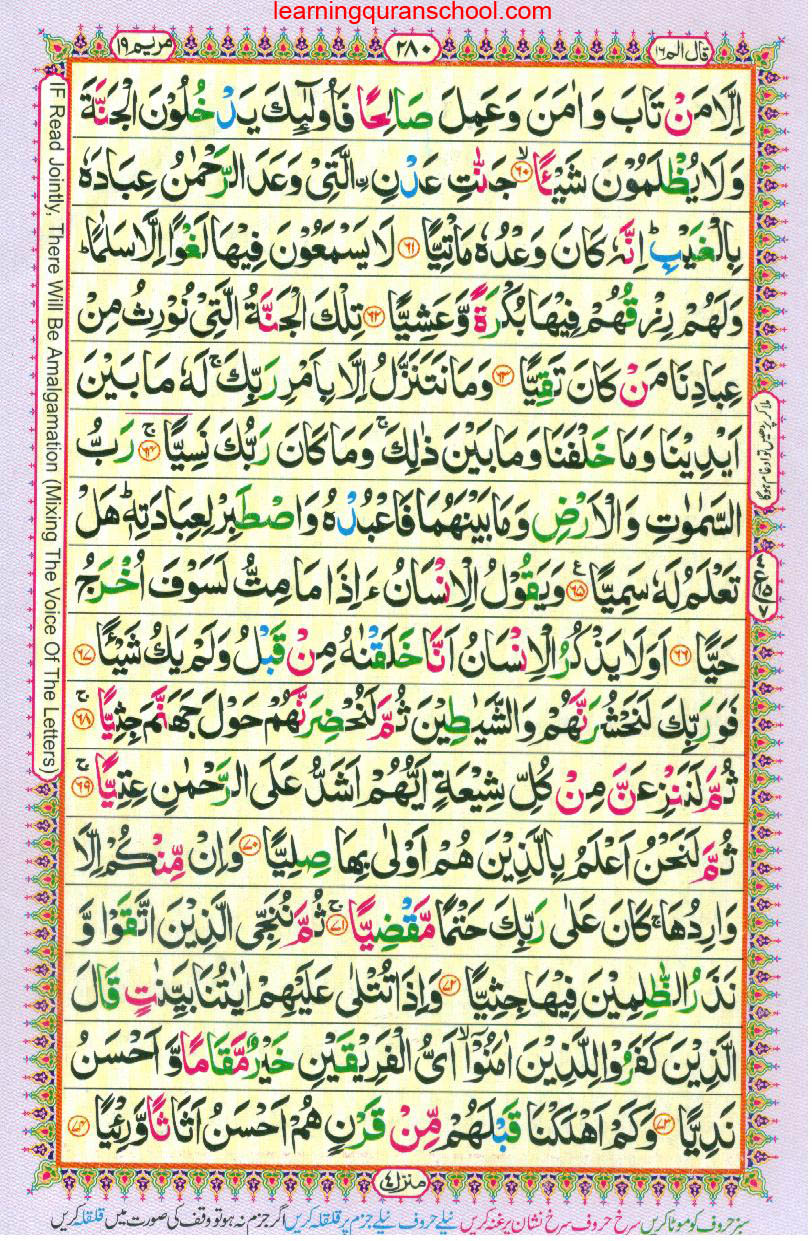 learningquranschool.com
قال الم ١٦
٢٨٠
مريم ١٩
اِلَّا مَنْ تَابَ وَاٰمَنَ وَعَمِلَ صَالِحًا فَاُولٰٓئِكَ يَدْخُلُوْنَ الْجَنَّةَ
وَلَا يُظْلَمُوْنَ شَيْـًٔا ۙ﴿٦٠﴾ جَنّٰتِ عَدْنِ ۨالَّتِيْ وَعَدَ الرَّحْمٰنُ عِبَادَهٗ
بِالْغَيْبِ ؕ اِنَّهٗ كَانَ وَعْدُهٗ مَاْتِيًّا ﴿٦١﴾ لَا يَسْمَعُوْنَ فِيْهَا لَغْوًا اِلَّا سَلٰمًا ؕ
وَلَهُمْ رِزْقُهُمْ فِيْهَا بُكْرَةً وَّعَشِيًّا ﴿٦٢﴾ تِلْكَ الْجَنَّةُ الَّتِيْ نُوْرِثُ مِنْ
عِبَادِنَا مَنْ كَانَ تَقِيًّا ﴿٦٣﴾ وَمَا نَتَنَزَّلُ اِلَّا بِاَمْرِ رَبِّكَ ۚ لَهٗ مَا بَيْنَ
اَيْدِيْنَا وَمَا خَلْفَنَا وَمَا بَيْنَ ذٰلِكَ ۚ وَمَا كَانَ رَبُّكَ نَسِيًّا ۚ﴿٦٤﴾ رَبُّ
السَّمٰوٰتِ وَالْاَرْضِ وَمَا بَيْنَهُمَا فَاعْبُدْهُ وَاصْطَبِرْ لِعِبَادَتِهٖ ؕ هَلْ
تَعْلَمُ لَهٗ سَمِيًّا ﴿٦٥﴾ ع وَيَقُوْلُ الْاِنْسَانُ ءَاِذَا مَا مِتُّ لَسَوْفَ اُخْرَجُ
حَيًّا ﴿٦٦﴾ اَوَلَا يَذْكُرُ الْاِنْسَانُ اَنَّا خَلَقْنٰهُ مِنْ قَبْلُ وَلَمْ يَكُ شَيْـًٔا ﴿٦٧﴾
فَوَرَبِّكَ لَنَحْشُرَنَّهُمْ وَالشَّيٰطِيْنَ ثُمَّ لَنُحْضِرَنَّهُمْ حَوْلَ جَهَنَّمَ جِثِيًّا ۚ﴿٦٨﴾
ثُمَّ لَنَنْزِعَنَّ مِنْ كُلِّ شِيْعَةٍ اَيُّهُمْ اَشَدُّ عَلَى الرَّحْمٰنِ عِتِيًّا ۚ﴿٦٩﴾
ثُمَّ لَنَحْنُ اَعْلَمُ بِالَّذِيْنَ هُمْ اَوْلٰى بِهَا صِلِيًّا ﴿٧٠﴾ وَاِنْ مِّنْكُمْ اِلَّا
وَارِدُهَا ۚ كَانَ عَلٰى رَبِّكَ حَتْمًا مَّقْضِيًّا ۚ﴿٧١﴾ ثُمَّ نُنَجِّي الَّذِيْنَ اتَّقَوْا وَّ
نَذَرُ الظّٰلِمِيْنَ فِيْهَا جِثِيًّا ﴿٧٢﴾ وَاِذَا تُتْلٰى عَلَيْهِمْ اٰيٰتُنَا بَيِّنٰتٍ قَالَ
الَّذِيْنَ كَفَرُوْا لِلَّذِيْنَ اٰمَنُوْۤا ۙ اَيُّ الْفَرِيْقَيْنِ خَيْرٌ مَّقَامًا وَّاَحْسَنُ
نَدِيًّا ﴿٧٣﴾ وَكَمْ اَهْلَكْنَا قَبْلَهُمْ مِّنْ قَرْنٍ هُمْ اَحْسَنُ اَثَاثًا وَّرِءْيًا ﴿٧٤﴾
IF Read Jointly, There Will Be Amalgamation (Mixing The Voice Of The Letters)
منزل ٤
سبز حروف کو موٹا کریں سرخ حروف سرخ نشان پر غنہ کریں نیلے حروف نیلے جزم پر قلقلہ کریں اگر جزم نہ ہو تو وقف کی صورت میں قلقلہ کریں